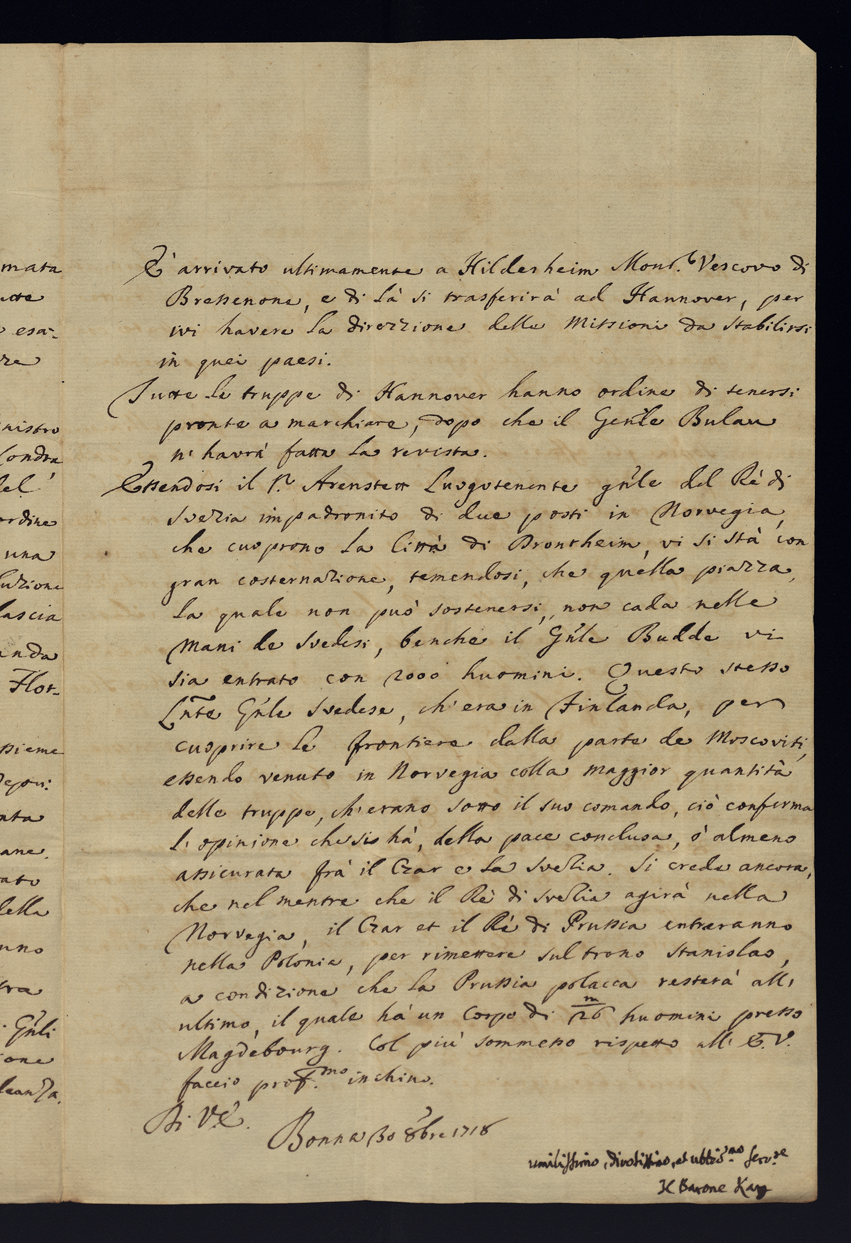 mata
utte
esa-
re
nistro
Londra
del
ordine
una
luzione
lascia
anda
Flot-
ssieme
nta
ane.
ato
della
nno
tra
Gn͠li
ione
leanza.
E' arrivato ultimamente a Hildesheim Mons.r Vescovo di
Bressenone, e di là si trasferirà ad Hannover, per
ivi havere la direzzione delle Missioni da stabilirsi
in quei paesi.
Tutte le truppe di Hannover hanno ordine di tenersi
pronte a marchiare, dopo che il Gen͠le Bulau
n' havrà fatta la revista.
Essendosi il S.r Arenstett Luogotenente gn͠le del Rè di
Svezia impadronito di due posti in Norvegia,
che cuoprono la Città di Drontheim, vi si stà con
gran costernazione, temendosi, che quella piazza,
la quale non può sostenersi, non cada nelle
mani de Svedesi, benche il Gn͠le Budde vi
sia entrato con 2000 huomini. Questo stesso
Ln͠te Gn͠le Svedese, ch'era in Finlanda, per
cuoprire le frontiere dalla parte de Moscoviti,
essendo venuto in Norvegia colla maggior quantità
delle truppe, ch'erano sotto il suo comando, ciò conferma
l'opinione che si hà, della pace conclusa, ò almeno
assicurata frà il Czar e la Svezia. Si crede ancora,
che nel mentre che il Rè di Svezia agirà nella
Norvegia, il Czar et il Rè di Prussia entraranno
nella Polonia, per rimettere sul trono Stanislao,
a condizione che la Prussia polacca resterà all'
ultimo, il quale hà un Corpo di 26m huomini presso
Magdebourg. Col più sommesso rispetto all' E.V.
faccio prof.mo inchino.
Di V.E.
Bonna 30 8bre 1718
umilissimo, divotissimo, et obbl.mo ser.re
Il Barone Karg